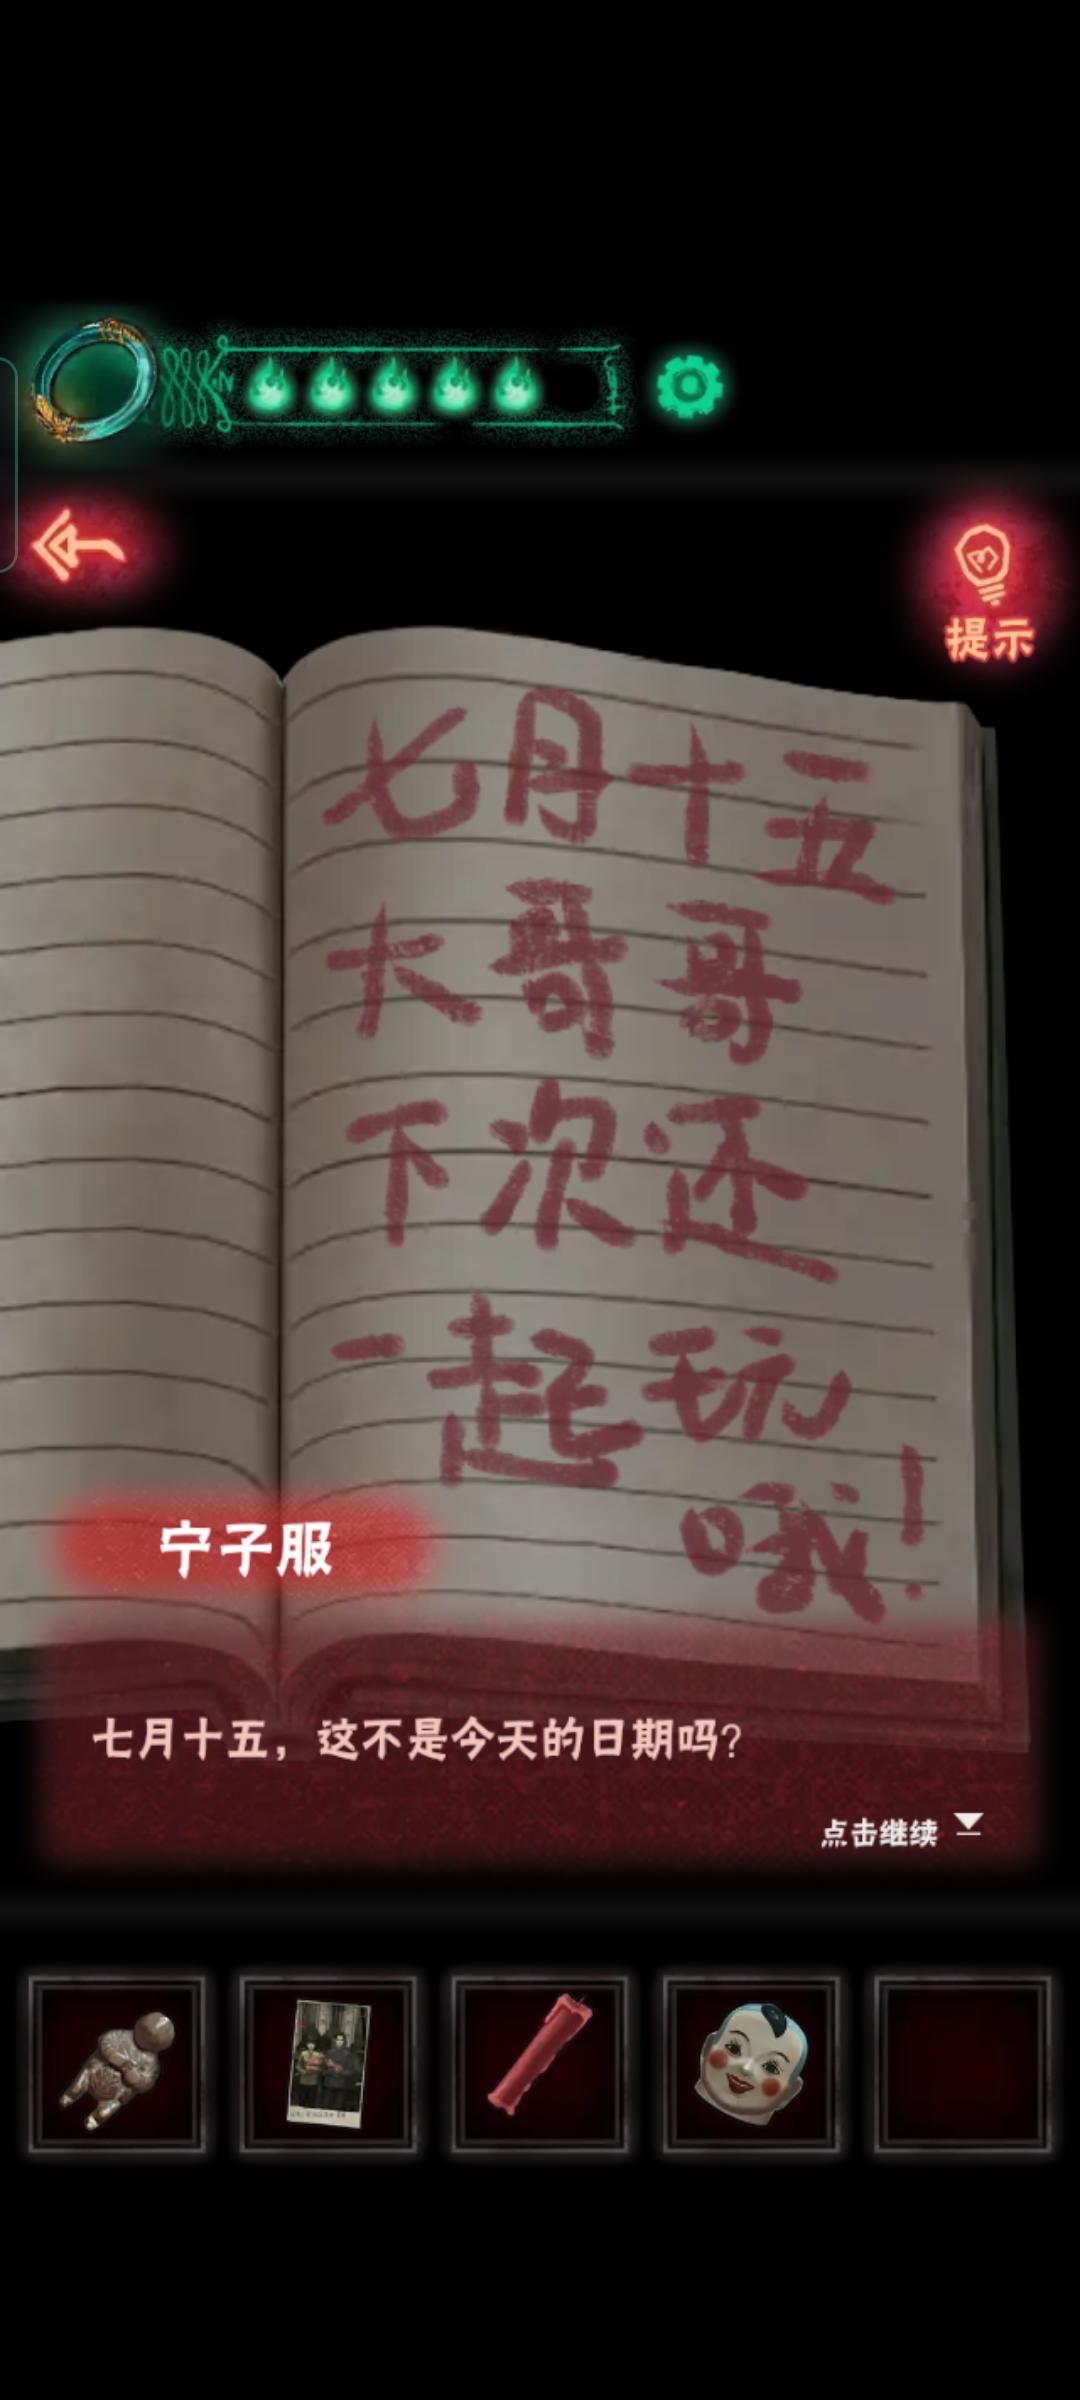 提示
七月十五
大哥哥
下次还
一起玩
哦！
宁子服
七月十五，这不是今天的日期吗？
点击继续